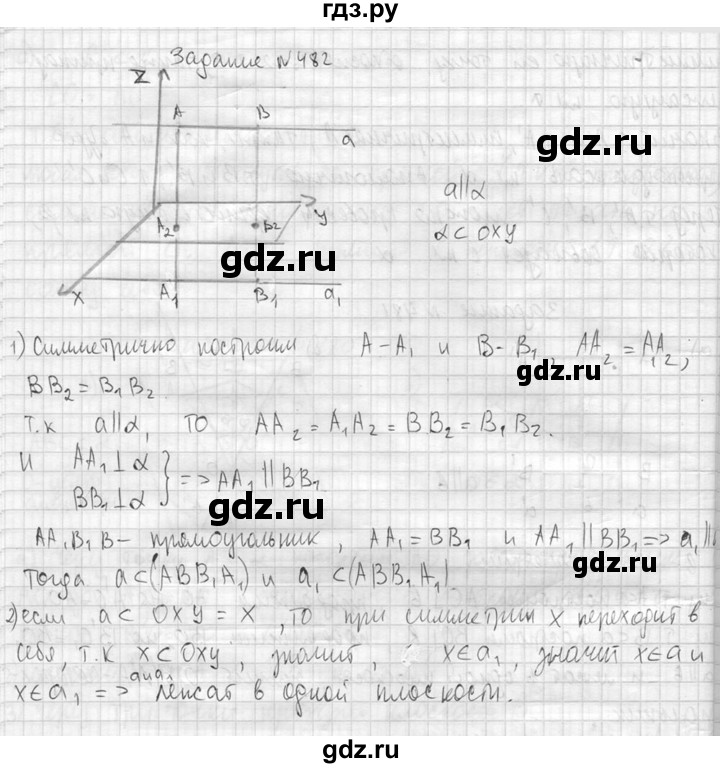 гдз.ру
Задание №482
Z
A B
a
gdz.ru
a∥α
α⊂OXY
A₂ B₂ y
gdz.ru
X A₁ B₁ a₁
1) Симметрично построим A-A₁ и B-B₁, AA₂=A₁A₂;
gdz.ru
BB₂=B₁B₂.
т.к a∥α, то AA₂=A₁A₂=BB₂=B₁B₂.
и AA₁⊥α
BB₁⊥α } => AA₁∥BB₁
gdz.ru
AA₁B₁B- прямоугольник, AA₁=BB₁ и AA₁∥BB₁=>a₁∥
gdz.ru
Тогда a⊂(ABB₁A₁) и a₁⊂(ABB₁A₁).
2) если a⊂OXY=X, то при симметрии X переходит в
себя, т.к X⊂OXY, значит, X∈a₁, значит X∈a и
X∈a₁=> a и a₁ лежат в одной плоскости.
gdz.ru